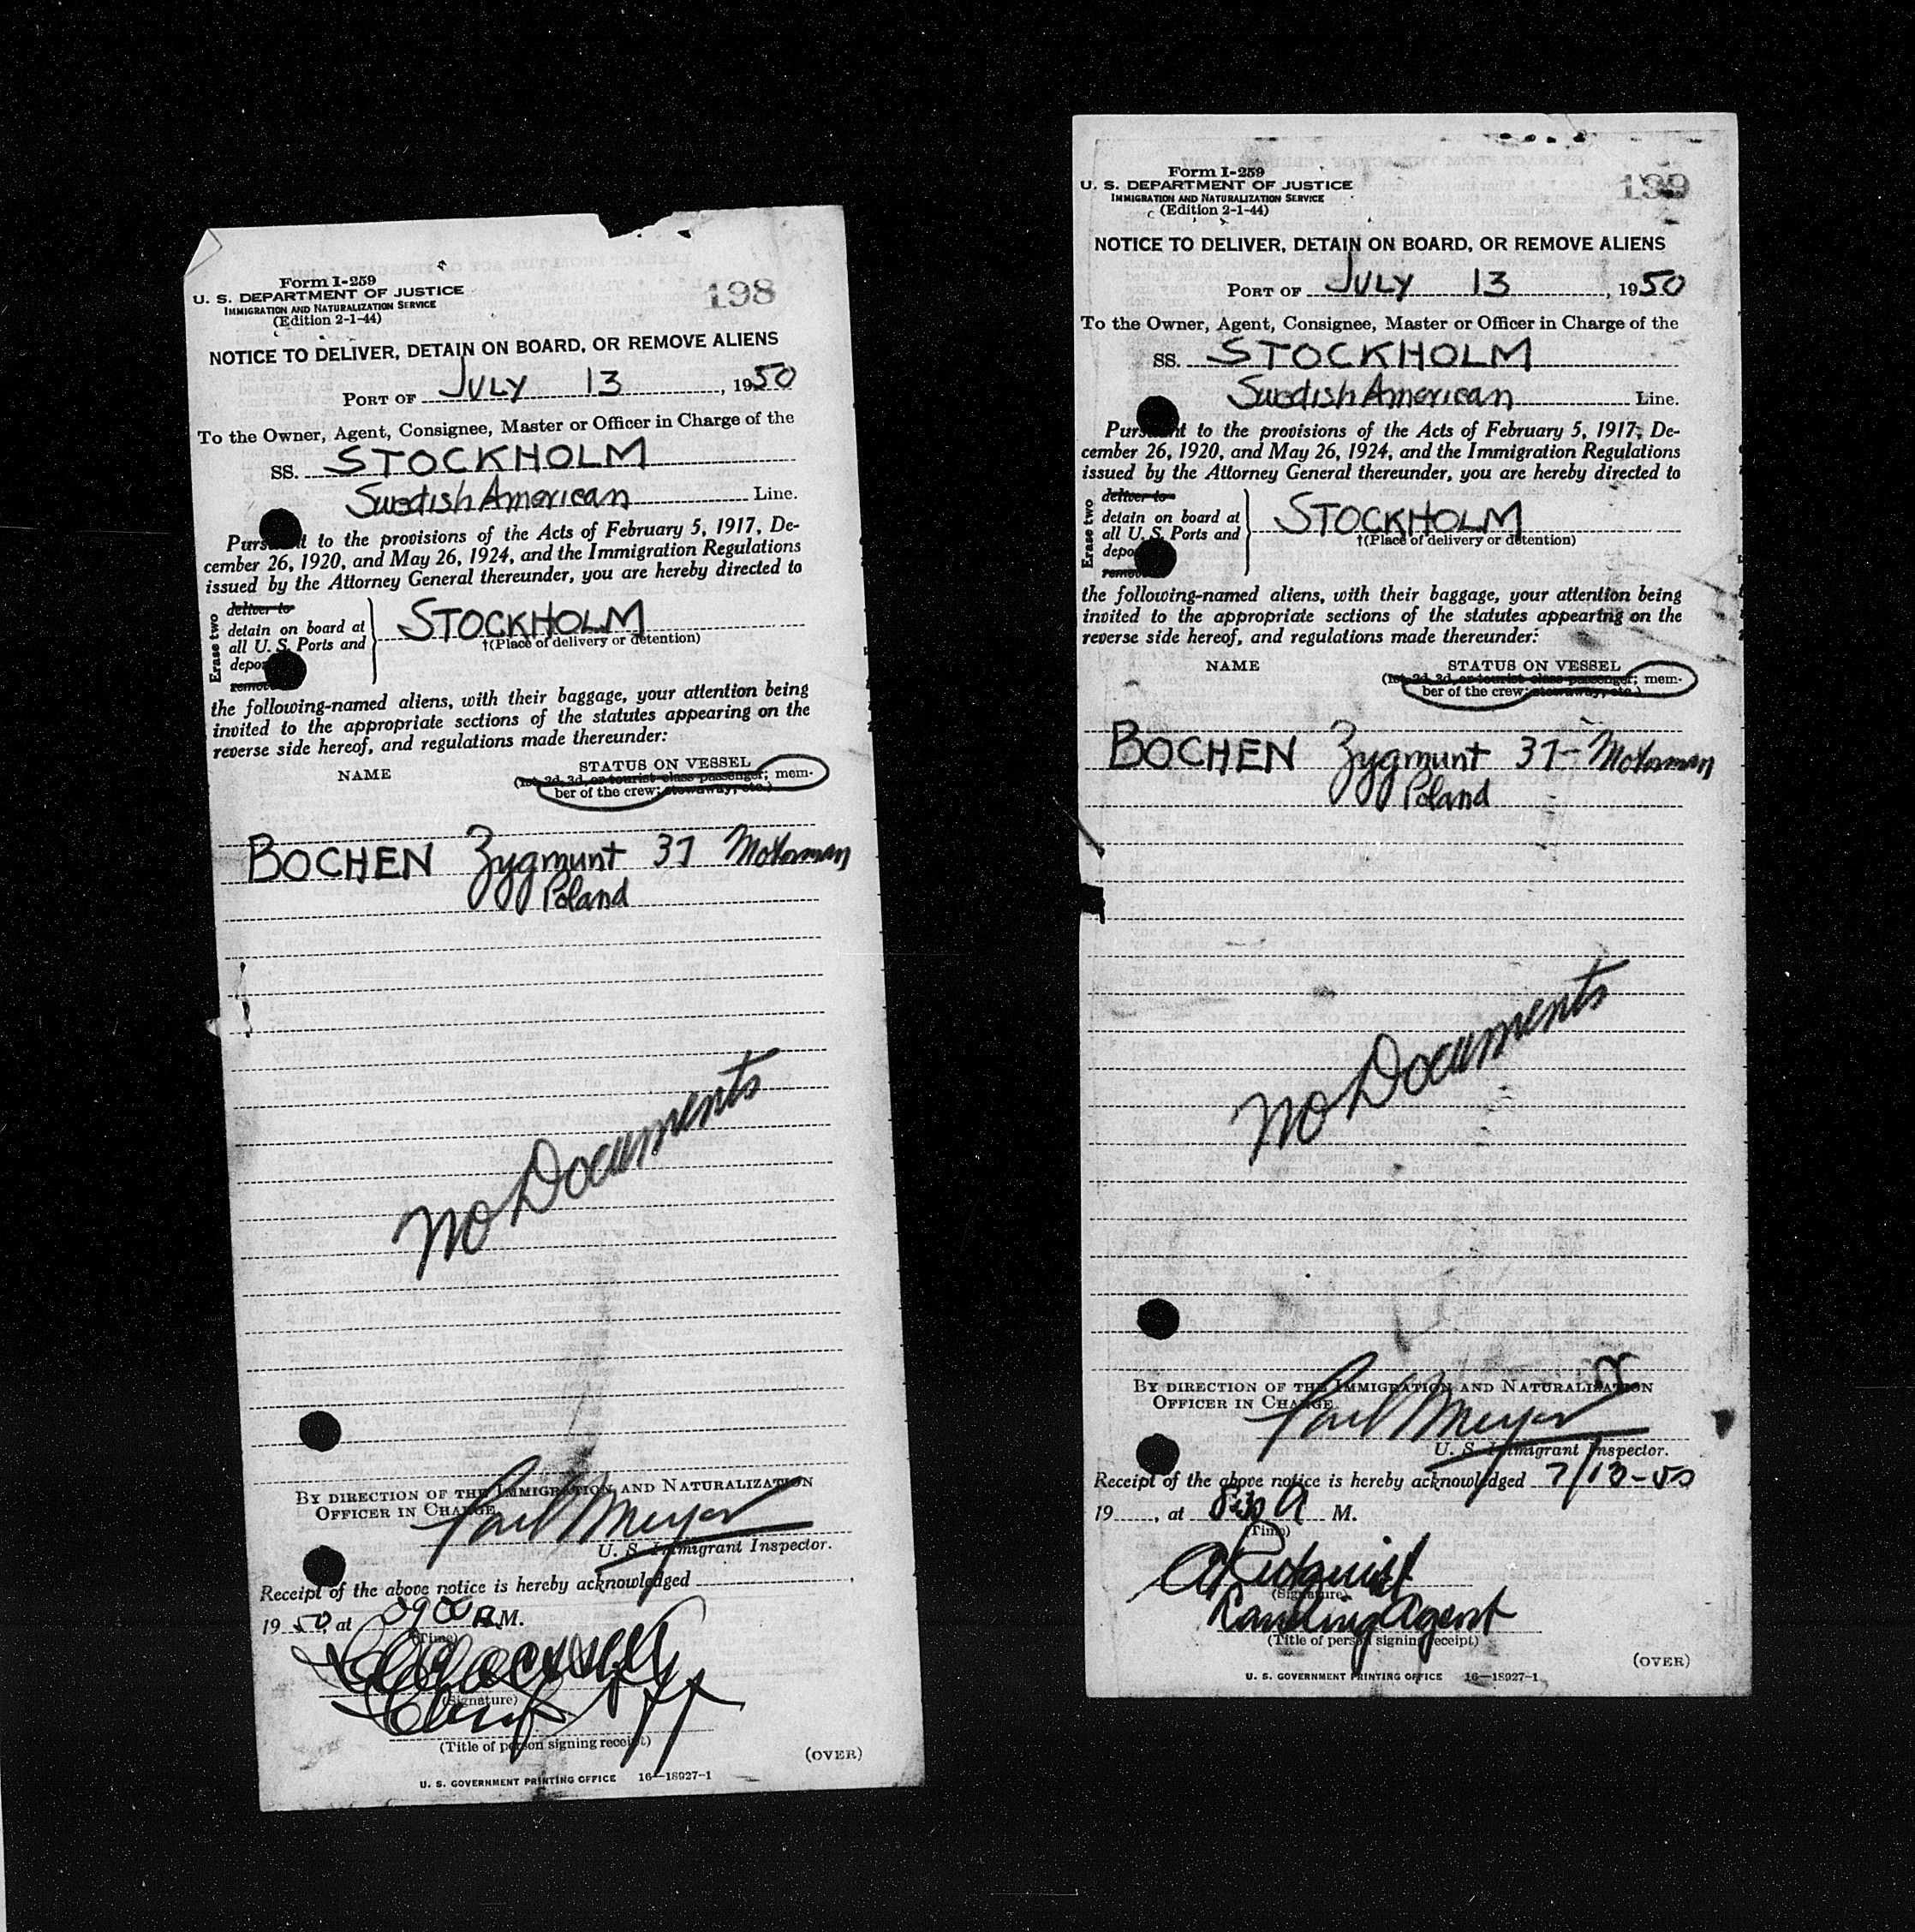 Form I-259
U. S. DEPARTMENT OF JUSTICE
IMMIGRATION AND NATURALIZATION SERVICE
(Edition 2-1-44)
198
NOTICE TO DELIVER, DETAIN ON BOARD, OR REMOVE ALIENS
PORT OF JULY 13, 1950
To the Owner, Agent, Consignee, Master or Officer in Charge of the
SS. STOCKHOLM
Swedish American Line.
Pursuant to the provisions of the Acts of February 5, 1917, De-
cember 26, 1920, and May 26, 1924, and the Immigration Regulations
issued by the Attorney General thereunder, you are hereby directed to
Erase two
deliver to
detain on board at
all U. S. Ports and
depo
remove
STOCKHOLM
†(Place of delivery or detention)
the following-named aliens, with their baggage, your attention being
invited to the appropriate sections of the statutes appearing on the
reverse side hereof, and regulations made thereunder:
NAME STATUS ON VESSEL
(1st, 2d, 3d, or tourist class passenger; mem-
ber of the crew; stowaway, etc.)
BOCHEN Zygmunt 37 Motorman
Poland
No Documents
BY DIRECTION OF THE IMMIGRATION AND NATURALIZATION
OFFICER IN CHARGE
Paul Meyer
U. S. Immigrant Inspector.
Receipt of the above notice is hereby acknowledged
1950, at 0900 A.M.
(Time)
(Signature)
(Title of person signing receipt)
(OVER)
U. S. GOVERNMENT PRINTING OFFICE 16—18927-1
Form I-259
U. S. DEPARTMENT OF JUSTICE
IMMIGRATION AND NATURALIZATION SERVICE
(Edition 2-1-44)
199
NOTICE TO DELIVER, DETAIN ON BOARD, OR REMOVE ALIENS
PORT OF JULY 13, 1950
To the Owner, Agent, Consignee, Master or Officer in Charge of the
SS. STOCKHOLM
Swedish American Line.
Pursuant to the provisions of the Acts of February 5, 1917, De-
cember 26, 1920, and May 26, 1924, and the Immigration Regulations
issued by the Attorney General thereunder, you are hereby directed to
Erase two
deliver to
detain on board at
all U. S. Ports and
depo
remove
STOCKHOLM
†(Place of delivery or detention)
the following-named aliens, with their baggage, your attention being
invited to the appropriate sections of the statutes appearing on the
reverse side hereof, and regulations made thereunder:
NAME STATUS ON VESSEL
(1st, 2d, 3d, or tourist class passenger; mem-
ber of the crew; stowaway, etc.)
BOCHEN Zygmunt 37- Motorman
Poland
No Documents
BY DIRECTION OF THE IMMIGRATION AND NATURALIZATION
OFFICER IN CHARGE
Paul Meyer
U. S. Immigrant Inspector.
Receipt of the above notice is hereby acknowledged 7/13-50
19, at A M.
(Time)
(Signature)
Landing Agent
(Title of person signing receipt)
(OVER)
U. S. GOVERNMENT PRINTING OFFICE 16—18927-1